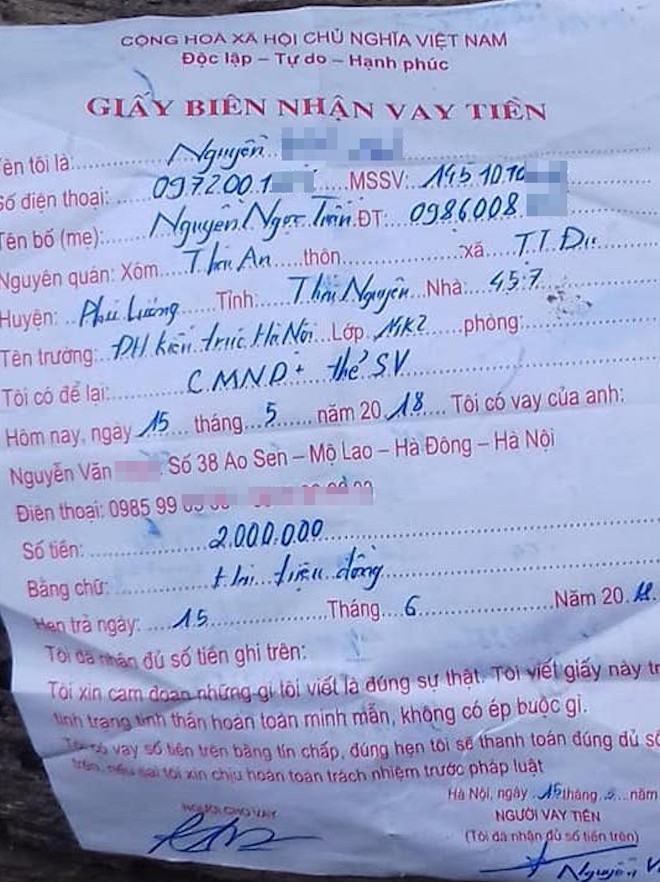 CỘNG HOÀ XÃ HỘI CHỦ NGHĨA VIỆT NAM
Độc lập – Tự do – Hạnh phúc
GIẤY BIÊN NHẬN VAY TIỀN
Tên tôi là: Nguyễn
Số điện thoại: 097200 1 MSSV: 1451010
Tên bố (mẹ): Nguyễn Ngọc Trần ĐT: 0986008
Nguyên quán: Xóm Thái An thôn xã T.T Đu
Huyện: Phú Lương Tỉnh: Thái Nguyên Nhà: 457
Tên trường: ĐH kiến trúc Hà Nội Lớp MK2 phòng:
Tôi có để lại: CMND + thẻ SV
Hôm nay, ngày 15 tháng 5 năm 2018 Tôi có vay của anh:
Nguyễn Văn Số 38 Ao Sen – Mộ Lao – Hà Đông – Hà Nội
Điện thoại: 0985 99
Số tiền: 2.000.000
Bằng chữ: Hai triệu đồng
Hẹn trả ngày: 15 Tháng 6 Năm 2018
Tôi đã nhận đủ số tiền ghi trên:
Tôi xin cam đoan những gì tôi viết là đúng sự thật. Tôi viết giấy này tr
tình trạng tinh thần hoàn toàn minh mẫn, không có ép buộc gì.
Tôi có vay số tiền trên bằng tín chấp, đúng hẹn tôi sẽ thanh toán đúng đủ số
trên, nếu sai tôi xin chịu hoàn toàn trách nhiệm trước pháp luật
Hà Nội, ngày 15 tháng 5 năm
NGƯỜI CHO VAY NGƯỜI VAY TIỀN
(Tôi đã nhận đủ số tiền trên)
Nguyễn V